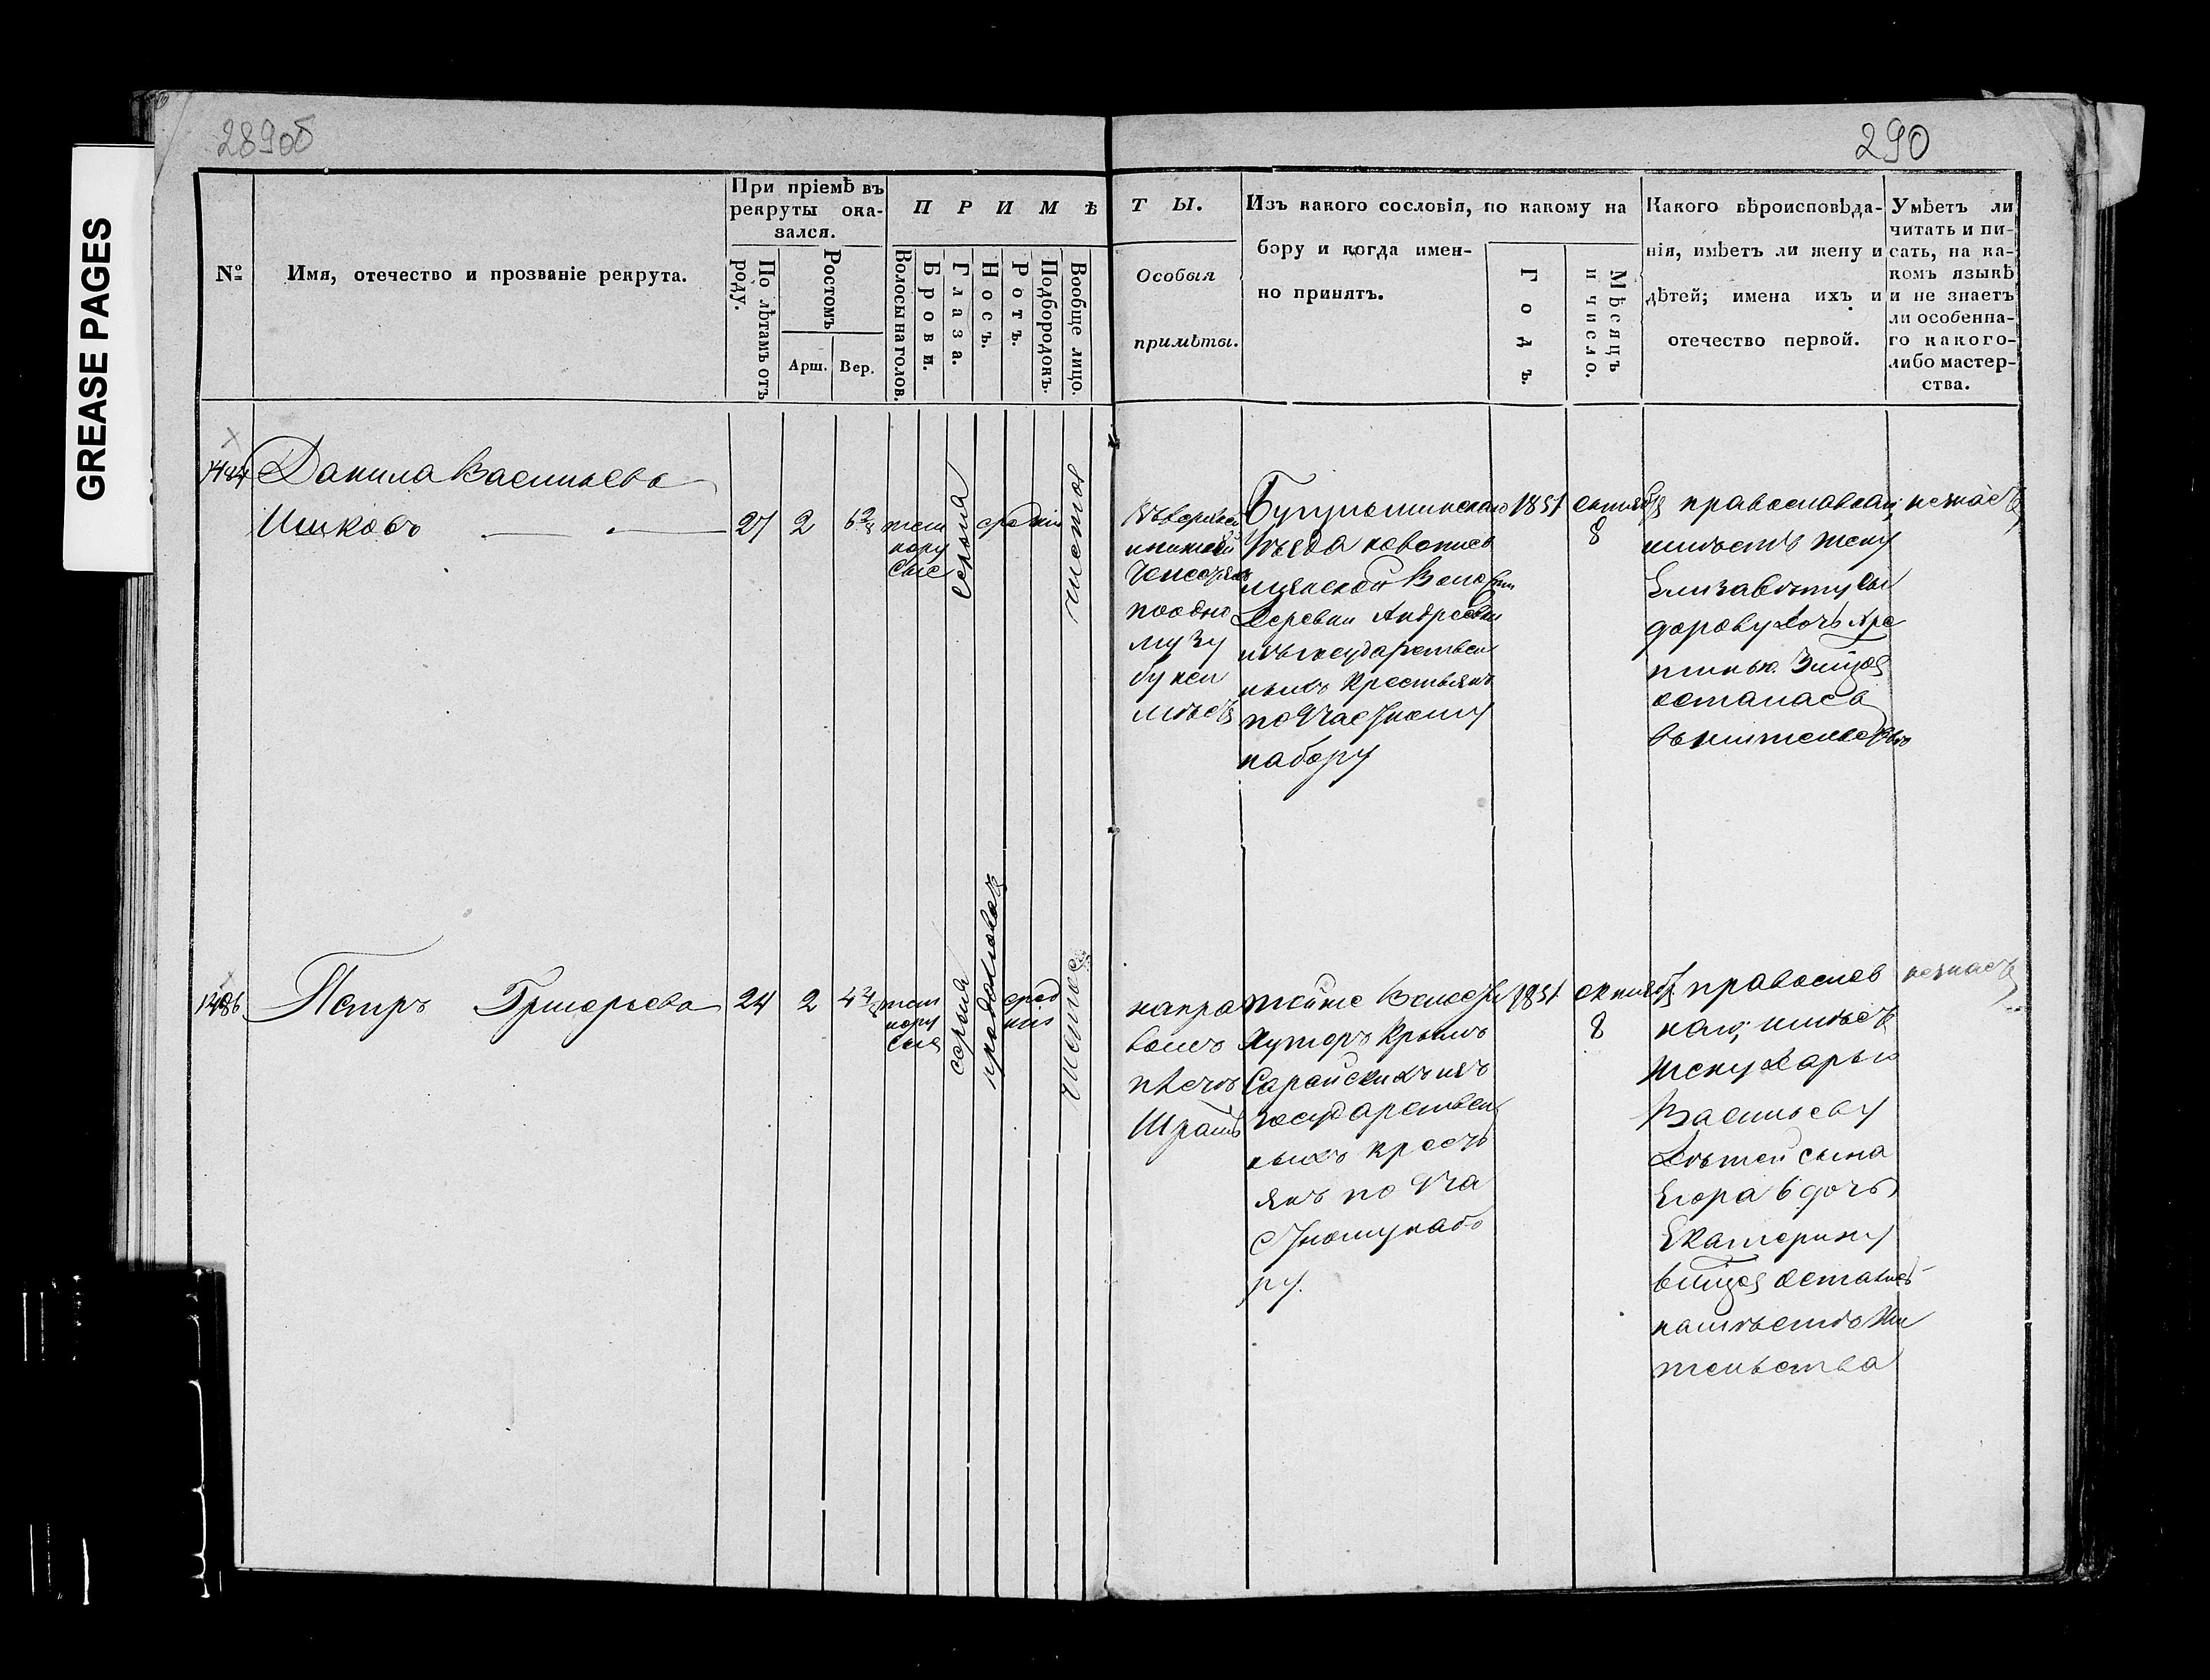 289об
290
GREASE PAGES
№
Имя, отечество и прозваніе рекрута.
При пріемѣ въ
рекруты ока-
зался.
По лѣтамъ отъ
роду.
Ростомъ
Арш. Вер.
П Р И М Ѣ
Волосы на голов.
Брови.
Глаза.
Носъ.
Ротъ.
Подбородокъ.
Вообще лицо.
Т Ы.
Особыя
примѣты.
Изъ какого сословія, по какому на
бору и когда имен-
но принятъ.
Годъ.
Мѣсяцъ
и число.
Какого вѣроисповѣда-
нія, имѣетъ ли жену и
дѣтей; имена ихъ и
отечество первой.
Умѣетъ ли
читать и пи-
сать, на ка-
комъ языкѣ
и не знаетъ
ли особенна-
го какого-
либо мастер-
ства.
Данила Васильевъ
Ишковъ
27 2 6
тем
нору
сые
серыя
средній
чистое
въ верхней
и нижней
челюстяхъ
по одно
му зу
бу не и
мѣетъ
Бугульминскаго
уѣзда новопись
мянской Волости
Деревни Андреевки
изъ государствен
ныхъ крестьянъ
по Частному
набору
1851
октября
8
православнаго,
имѣетъ жену
Елизавѣту Си
дорову дочь
осталась
незнаетъ
1486
Петръ Григорьевъ
24 2 4
тем
нору
сыя
серыя
продолговатъ
сред
ній
чистое
на пра
вомъ
плечѣ
Шрамъ
тойже Волости
Хуторъ Крымъ
Сарайскихъ изъ
государствен
ныхъ кресть
янъ по Ча
стному набо
ру.
1851
октября
8
православ
наго, имѣетъ
жену Дарью
Васильеву
Дѣтей сына
Егора 6 дочь
Екатерину
остались
на мѣстѣ жи
тельства
незнаетъ